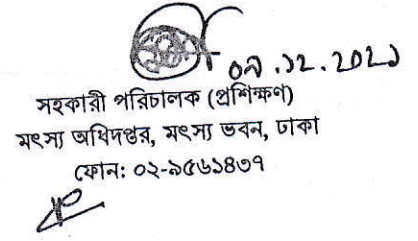 ০৯.১২.২০২১
সহকারী পরিচালক (প্রশিক্ষণ)
মৎস্য অধিদপ্তর, মৎস্য ভবন, ঢাকা
ফোন: ০২-৯৫৬১৪৩৭